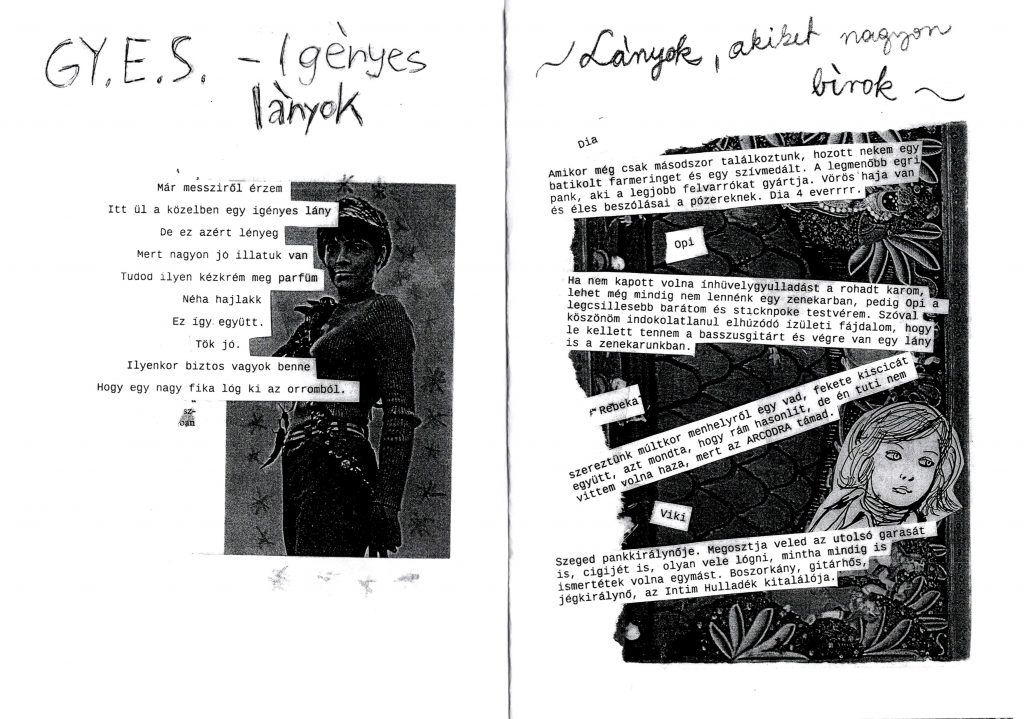 GY.E.S. - Igènyes
lànyok
Már messziről érzem
Itt ül a közelben egy igényes lány
De ez azért lényeg
Mert nagyon jó illatuk van
Tudod ilyen kézkrém meg parfüm
Néha hajlakk
Ez így együtt.
Tök jó.
Ilyenkor biztos vagyok benne
Hogy egy nagy fika lóg ki az orromból.
~ Lànyok, akiket nagyon
bìrok ~
Dia
Amikor még csak másodszor találkoztunk, hozott nekem egy
batikolt farmeringet és egy szívmedált. A legmenőbb egri
pank, aki a legjobb felvarrókat gyártja. Vörös haja van
és éles beszólásai a pózereknek. Dia 4 everrrr.
Opi
Ha nem kapott volna ínhüvelygyulladást a rohadt karom,
lehet még mindig nem lennénk egy zenekarban, pedig Opi a
legcsillesebb barátom és sticknpoke testvérem. Szóval
köszönöm indokolatlanul elhúzódó ízületi fájdalom, hogy
le kellett tennem a basszusgitárt és végre van egy lány
is a zenekarunkban.
Rebeka
szereztünk múltkor menhelyről egy vad, fekete kiscicát
együtt, azt mondta, hogy rám hasonlít, de én tuti nem
vittem volna haza, mert az ARCODRA támad.
Viki
Szeged pankkirálynője. Megosztja veled az utolsó garasát
is, cigijét is, olyan vele lógni, mintha mindig is
ismertétek volna egymást. Boszorkány, gitárhős,
jégkirálynő, az Intim Hulladék kitalálója.